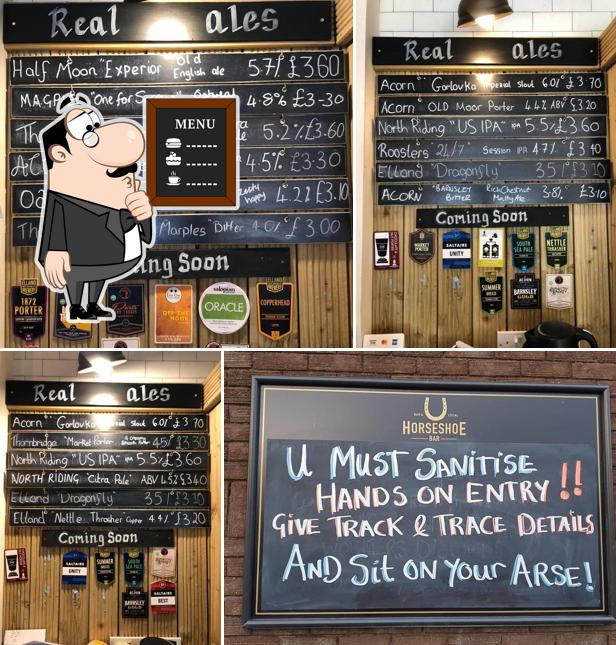 Real ales
Half Moon "Experior" Old English ale 5.7% £3.60
"One for S
4.8% £3-30
5.2% £3.60
4.5% £3.30
happy 4.2% £3.10
Marples "Bitter" 4.0% £3.00
MENU
ng Soon
1872
PORTER
OFF THE
HOOK
salopian
ORACLE
ELLAND
COPPERHEAD
Real ales
Acorn "Gorlovka" Imperial Stout 6.0% £3.70
Acorn "OLD Moor Porter 4.4% ABV £3.20
North Riding "US IPA" 5.5% £3.60
Roosters "24/7" Session IPA 4.7% £3.40
Elland "Dragonfly" 3.5% £3.10
ACORN "BARNSLEY BITTER" Rich Chestnut Malty Ale 3.8% £3.10
Coming Soon
MARKET
PORTER
SALTAIRE
UNITY
SOUTH
SEA PALE
NETTLE
THRASHER
SUMMER
ACORN
BARNSLEY
GOLD
Real ales
Acorn "Gorlovka" Imperial Stout 6.0% £3.70
Thornbridge "Market Porter" 4.5% £3.30
North Riding "US IPA" 5.5% £3.60
NORTH RIDING "Citra Pale" ABV 4.5% £3.40
Elland "Dragonfly" 3.5% £3.10
Elland "Nettle Thrasher" Copper 4.4% £3.20
Coming Soon
SALTAIRE
UNITY
SUMMER
SOUTH
SEA PALE
BARNSLEY
GOLD
SALTAIRE
BEST
BAR & LOCAL
HORSESHOE
BAR
U MUST SANITISE
HANDS ON ENTRY !!
GIVE TRACK & TRACE DETAILS
AND Sit ON YOUR ARSE!